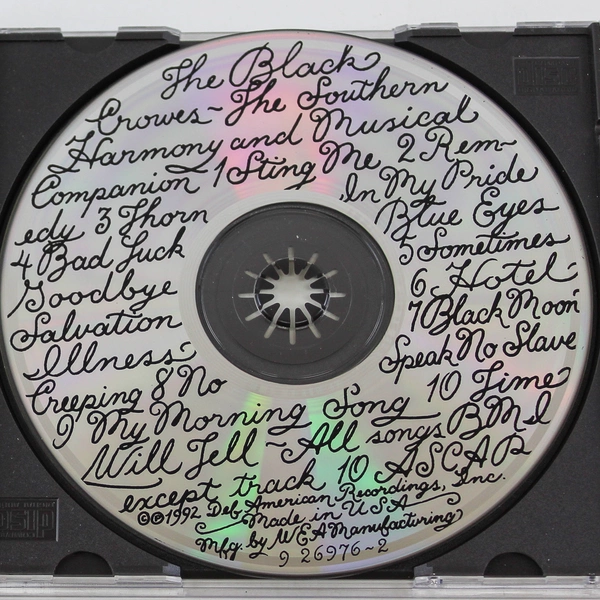 The Black
Crowes~The Southern
Harmony and Musical
Companion 1 Sting Me 2 Rem-
edy 3 Thorn In My Pride
4 Bad Luck Blue Eyes
Goodbye 5 Sometimes
Salvation 6 Hotel
Illness 7 Black Moon
Creeping 8 No Speak No Slave
9 My Morning Song 10 Time
Will Tell~All songs BMI
except track 10 ASCAP
℗©1992 Def American Recordings, Inc.
Made in USA
Mfg. by WEA Manufacturing
9 26976-2